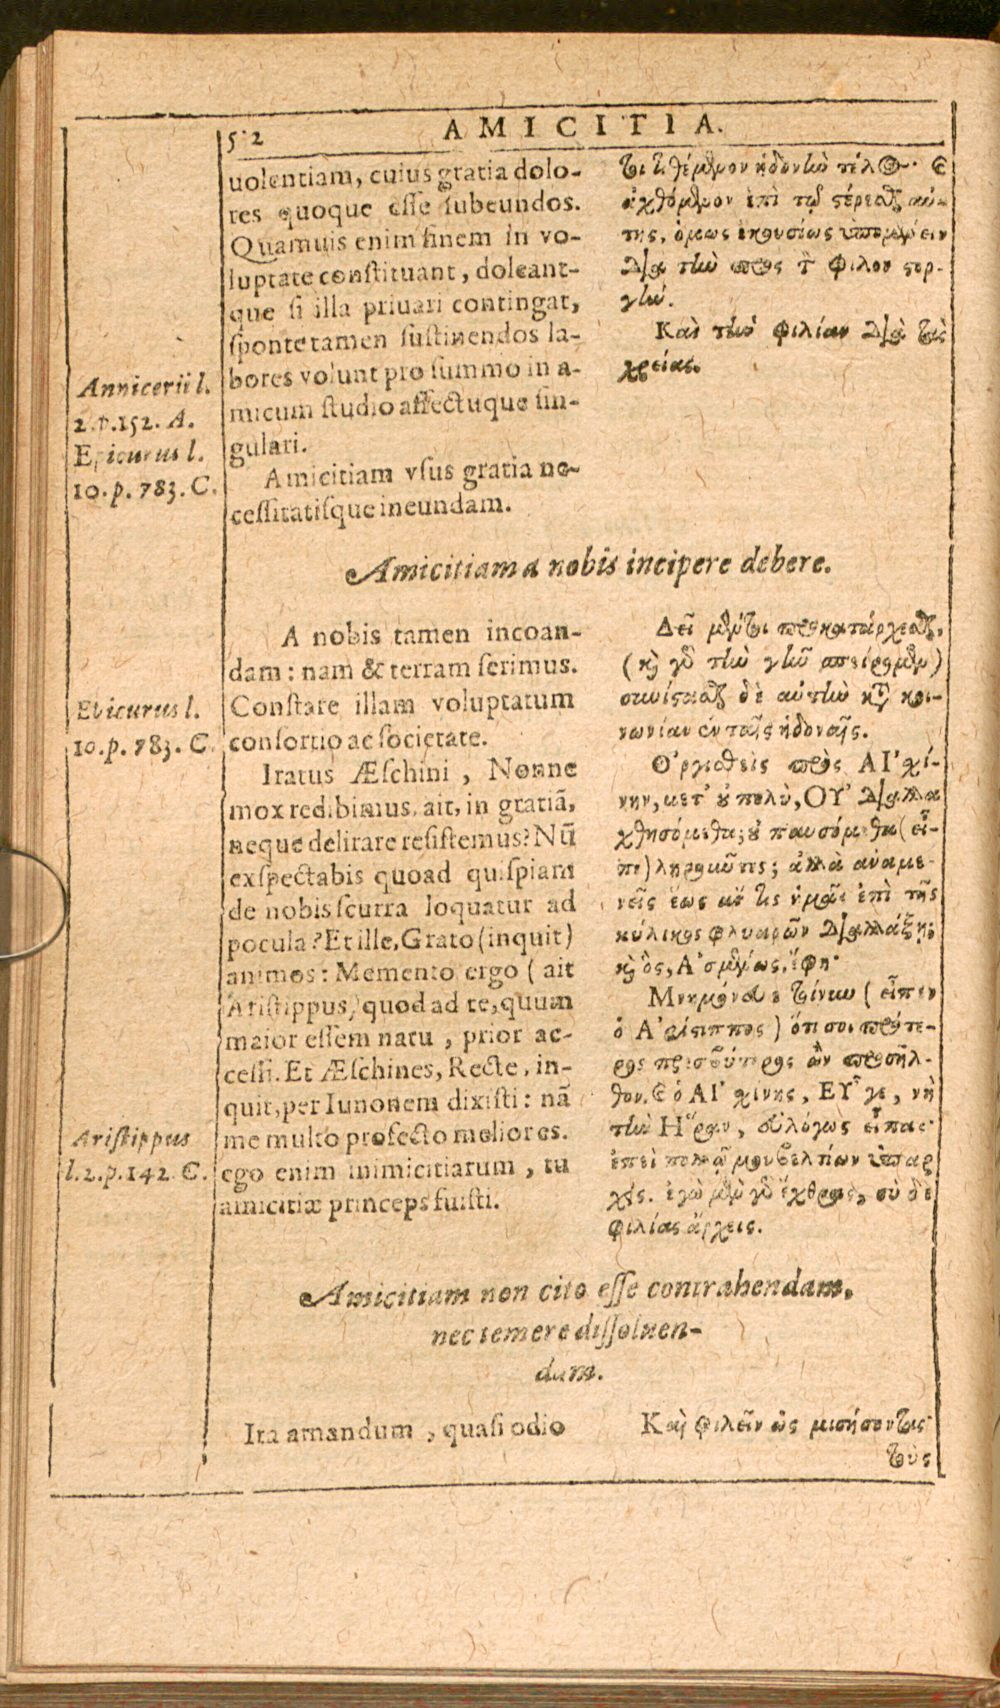 52
AMICITIA.
uolentiam, cuius gratia dolo-
res quoque esse subeundos.
Quamuis enim finem in vo-
luptate constituant, doleant-
que si illa priuari contingat,
sponte tamen sustinendos la-
bores volunt pro summo in a-
micum studio affectuque sin-
gulari.
Amicitiam vsus gratia ne-
cessitatisque ineundam.
Annicerii l.
2.p.152. A.
Epicurus l.
10.p.783.C.
τὸ τιθέμενον ἡδονὴν τέλος. καὶ
ἀχθόμενον ἐπὶ τῷ στέρεσθαι αὐ-
τῆς, ὁμως ἑκουσίως ὑπομένειν
διὰ τὴν πρὸς τὸν φίλον στορ-
γήν.
Καὶ τὴν φιλίαν διὰ τὰς
χρείας.
Amicitiam a nobis incipere debere.
A nobis tamen incoan-
dam: nam & terram serimus.
Constare illam voluptatum
consortio ac societate.
Iratus Æschini, Nonne
mox redibimus, ait, in gratiã,
neque delirare resistemus? Nũ
exspectabis quoad quispiam
de nobis scurra loquatur ad
pocula? Et ille, Grato (inquit)
animos: Memento ergo (ait
Aristippus) quod ad te, quum
maior essem natu, prior ac-
cessi. Et Æschines, Recte, in-
quit, per Iunonem dixisti: nã
me multo profecto melior es.
ego enim inimicitiarum, tu
amicitiæ princeps fuisti.
Epicurus l.
10.p.783. C.
Aristippus
l.2.p.142 C.
Δεῖ μέντοι προκατάρχεσθαι,
(καὶ γὰρ τὴν γῆν σπείρομεν)
συνίστασθαι δὲ αὐτὴν κατὰ κοι-
νωνίαν ἐν ταῖς ἡδοναῖς.
Ὀργισθεὶς πρὸς ΑΙ᾽χί-
νην, μετ᾽ οὐ πολὺ, ΟΥ᾽ διαλλα
χθησόμεθα; οὐ παυσόμεθα (εἶ-
πε) ληροῦντες; ἀλλὰ ἀναμε-
νεῖς ἕως ἄν τις ἡμᾶς ἐπὶ τῆς
κύλικος φλυαρῶν διαλλάξῃ;
καὶ ὃς, Α᾽σμένως, ἔφη·
Μνημόνευε τοίνυν (εἶπεν
ὁ Α᾽ρίστιππος) ὅτι σοι πρότε-
ρος πρεσβύτερος ὢν προσῆλ-
θον. καὶ ὁ ΑΙ᾽χίνης, ΕΥ῏γε, νὴ
τὴν Ἥραν, εὐλόγως εἶπας·
ἐπεὶ πολλῷ μου βελτίων ὑπάρ
χεις. ἐγὼ μὲν γὰρ ἔχθρας, σὺ δὲ
φιλίας ἄρχεις.
Amicitiam non cito esse contrahendam,
nec temere dissoluen-
dam.
Ita amandum, quasi odio
Καὶ φιλεῖν ὡς μισήσοντας·
τοὺς